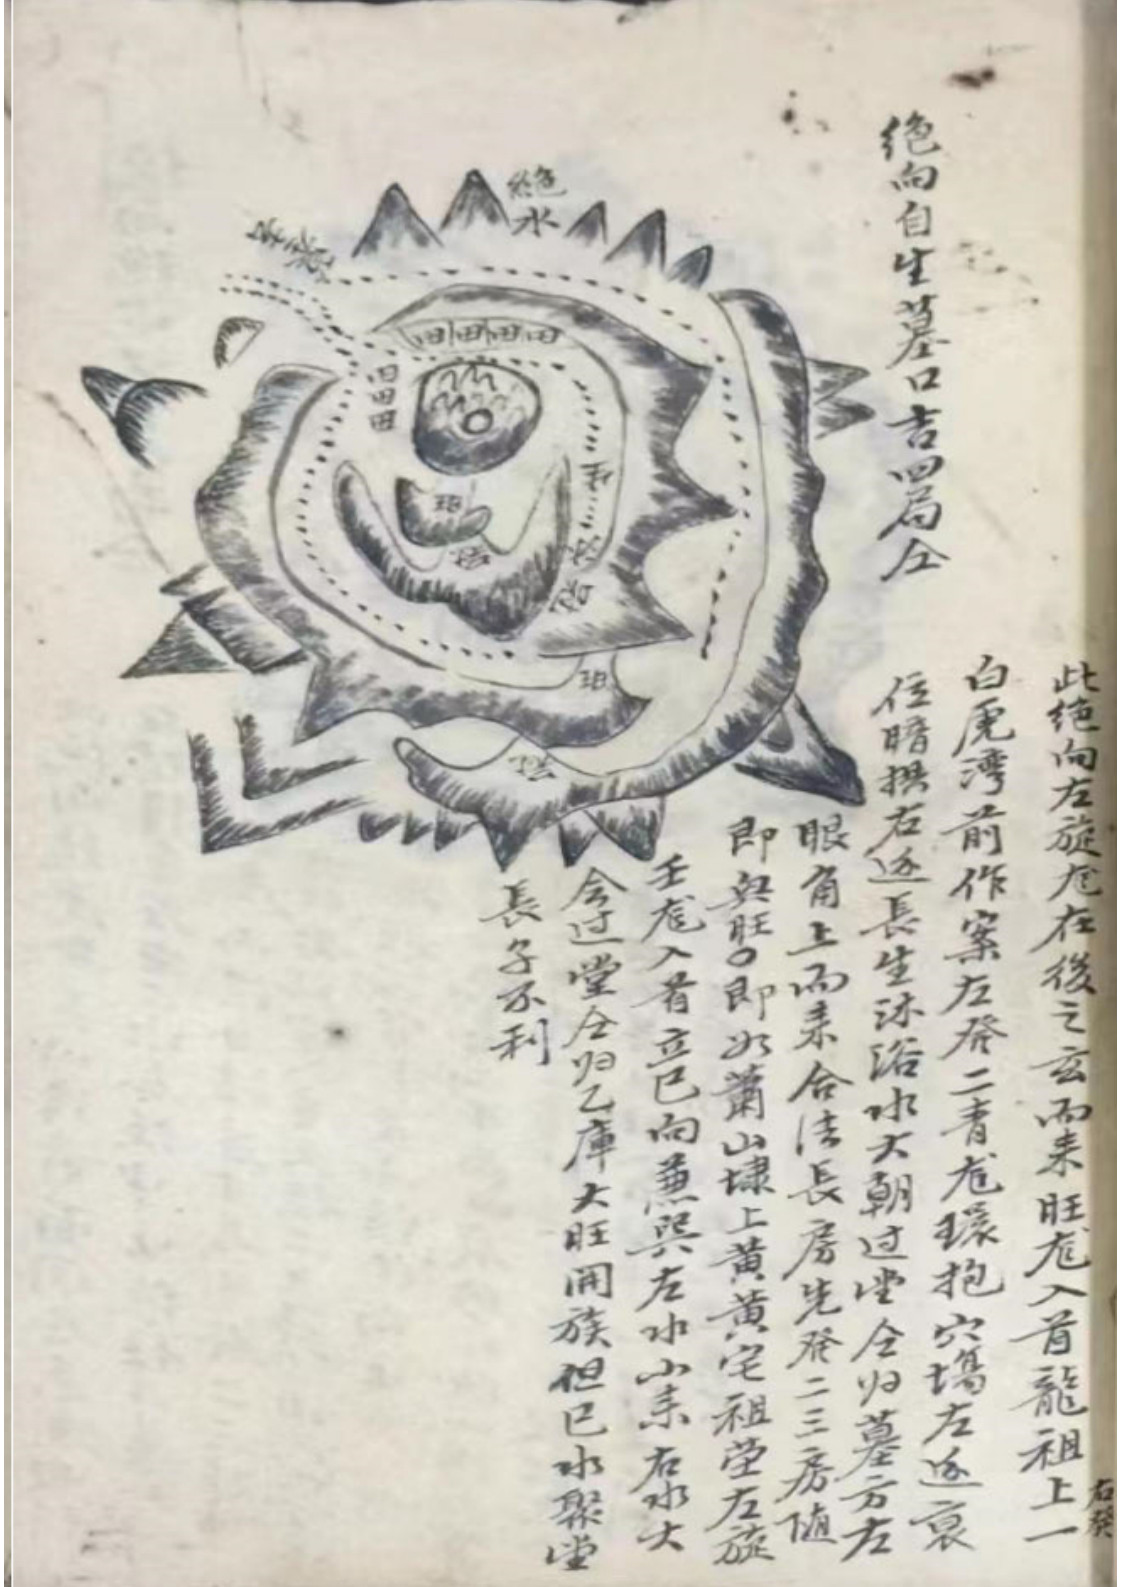 绝向自生墓口吉四局仝
此绝向左旋龙在後之玄而来旺龙入首龍祖上一
右發
白虎湾前作案左發二青龙環抱穴塲左边衰
位暗拱右边長生沐浴水大朝过堂仝归墓方左
眼角上而来合法長房先發二三房随
即與旺即如蕭山埭上黄黄宅祖茔左旋
壬龙入首立巳向兼巽左水小来右水大
会过堂仝归乙庫大旺開族但巳水聚堂
長子不利
绝
水
田田田田
田
田
田